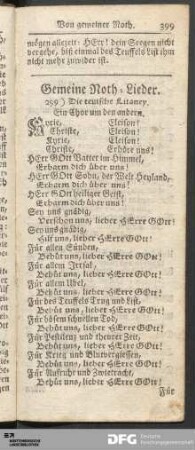 Von gemeiner Noth. 399
mögen allezeit: HErr! dein Sorgen nicht
vergehe, biß einmal des Teuffels List ihm
nicht mehr zuwider ist.
Gemeine Noth-Lieder.
259) Die teutsche Litaney.
Ein Chor um den andern.
Kyrie, Eleison!
Christe, Eleison!
Kyrie, Eleison!
Christe, Erhöre uns!
HErr GOtt Vatter im Himmel,
Erbarm dich über uns!
HErr GOtt Sohn, der Welt Heyland,
Erbarm dich über uns!
HErr GOtt heiliger Geist,
Erbarm dich über uns!
Sey uns gnädig,
Verschon uns, lieber HErre GOtt!
Sey uns gnädig,
Hilf uns, lieber HErre GOtt!
Für allen Sünden,
Behüt uns, lieber HErre GOtt!
Für allem Irrsal,
Behüt uns, lieber HErre GOtt!
Für allem Ubel,
Behüt uns, lieber HErre GOtt!
Für des Teuffels Trug und List,
Behüt uns, lieber HErre GOtt!
Für bösem schnellen Tod,
Behüt uns, lieber HErre GOtt!
Für Pestilenz und theurer Zeit,
Behüt uns, lieber HErre GOtt!
Für Krieg und Blutvergiessen,
Behüt uns, lieber HErre GOtt!
Für Aufruhr und Zwietracht,
Behüt uns, lieber HErre GOtt!
Für
WLB
WÜRTTEMBERGISCHE
LANDESBIBLIOTHEK
DFG Deutsche
Forschungsgemeinschaft